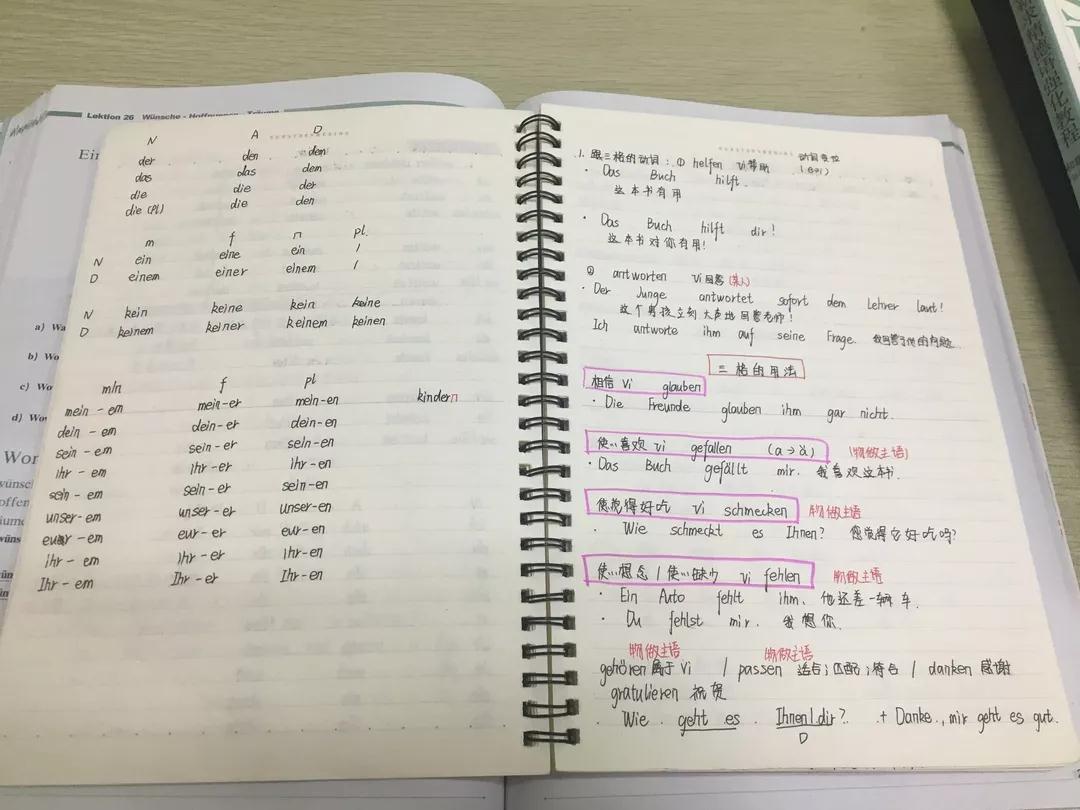 Lektion 26 Wünsche - Hoffnungen - Träume
Ein
N A D
der den dem
das das dem
die die der
die (Pl) die den
m f n pl.
N ein eine ein /
D einem einer einem /
N kein keine kein keine
D keinem keiner keinem keinen
a) Wa
b) Wo
c) Wo
d) Wo
Wor
m/n f pl
mein - em mein-er mein-en kindern
dein - em dein-er dein-en
sein - em sein-er sein-en
ihr - em ihr-er ihr-en
sein - em sein-er sein-en
unser-em unser-er unser-en
euer-em eur-er eur-en
ihr - em ihr-er ihr-en
Ihr - em Ihr-er Ihr-en
1. 跟三格的动词: ① helfen vi帮助 动词变位
(e→i)
· Das Buch hilft.
这本书有用
· Das Buch hilft dir!
这本书对你有用!
② antworten vi回答(某人)
· Der Junge antwortet sofort dem Lehrer laut!
这个男孩立刻大声地回答老师!
Ich antworte ihm auf seine Frage. 我回答了他的问题.
三格的用法
相信 vi glauben
· Die Freunde glauben ihm gar nicht.
使…喜欢 vi gefallen (a→ä) (物做主语)
· Das Buch gefällt mir. 我喜欢这本书.
使觉得好吃 vi schmecken 物做主语
· Wie schmeckt es Ihnen? 您觉得它好吃吗?
使…想念/使…缺少 vi fehlen 物做主语
· Ein Auto fehlt ihm. 他还差一辆车.
· Du fehlst mir. 我想你.
物做主语 物做主语
gehören 属于 vi / passen 适合;匹配;符合 / danken 感谢
gratulieren 祝贺
· Wie geht es Ihnen/dir? + Danke, mir geht es gut.
D